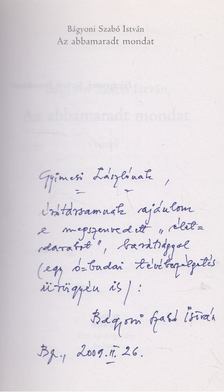 Bágyoni Szabó István
Az abbamaradt mondat
Gyimesi Lászlónak,
írótársamnak ajánlom
e megszenvedett „élet-
darabot", barátsággal
(egy ó-budai tévébeszélgetés
ürügyén is):
Bágyoni Szabó István
Bp., 2009. II. 26.